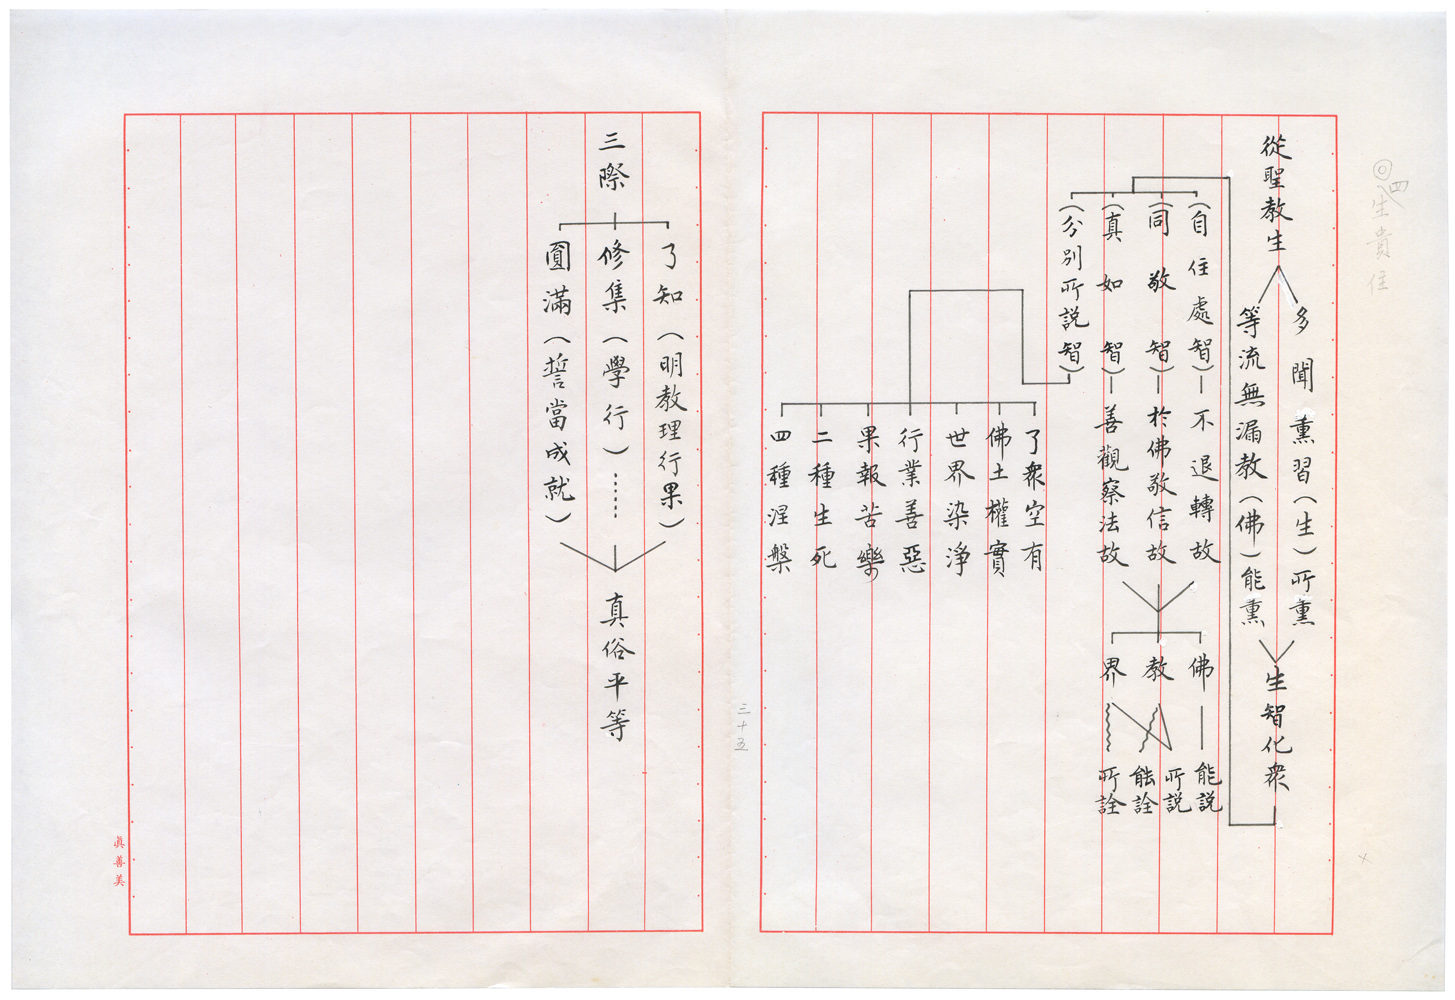 ◎四、生貴住
從聖教生
多聞熏習（生）所熏
等流無漏教（佛）能熏
生智化衆
（自住處智）
不退轉故
（同敬智）
於佛敬信故
（真如智）
善觀察法故
（分別所説智）
佛
教
界
能説
所説
能詮
所詮
了衆空有
佛土權實
世界染淨
行業善惡
果報苦樂
二種生死
四種涅槃
三十五
三際
了知（明教理行果）
修集（學行）
圓滿（誓當成就）
真俗平等
真善美